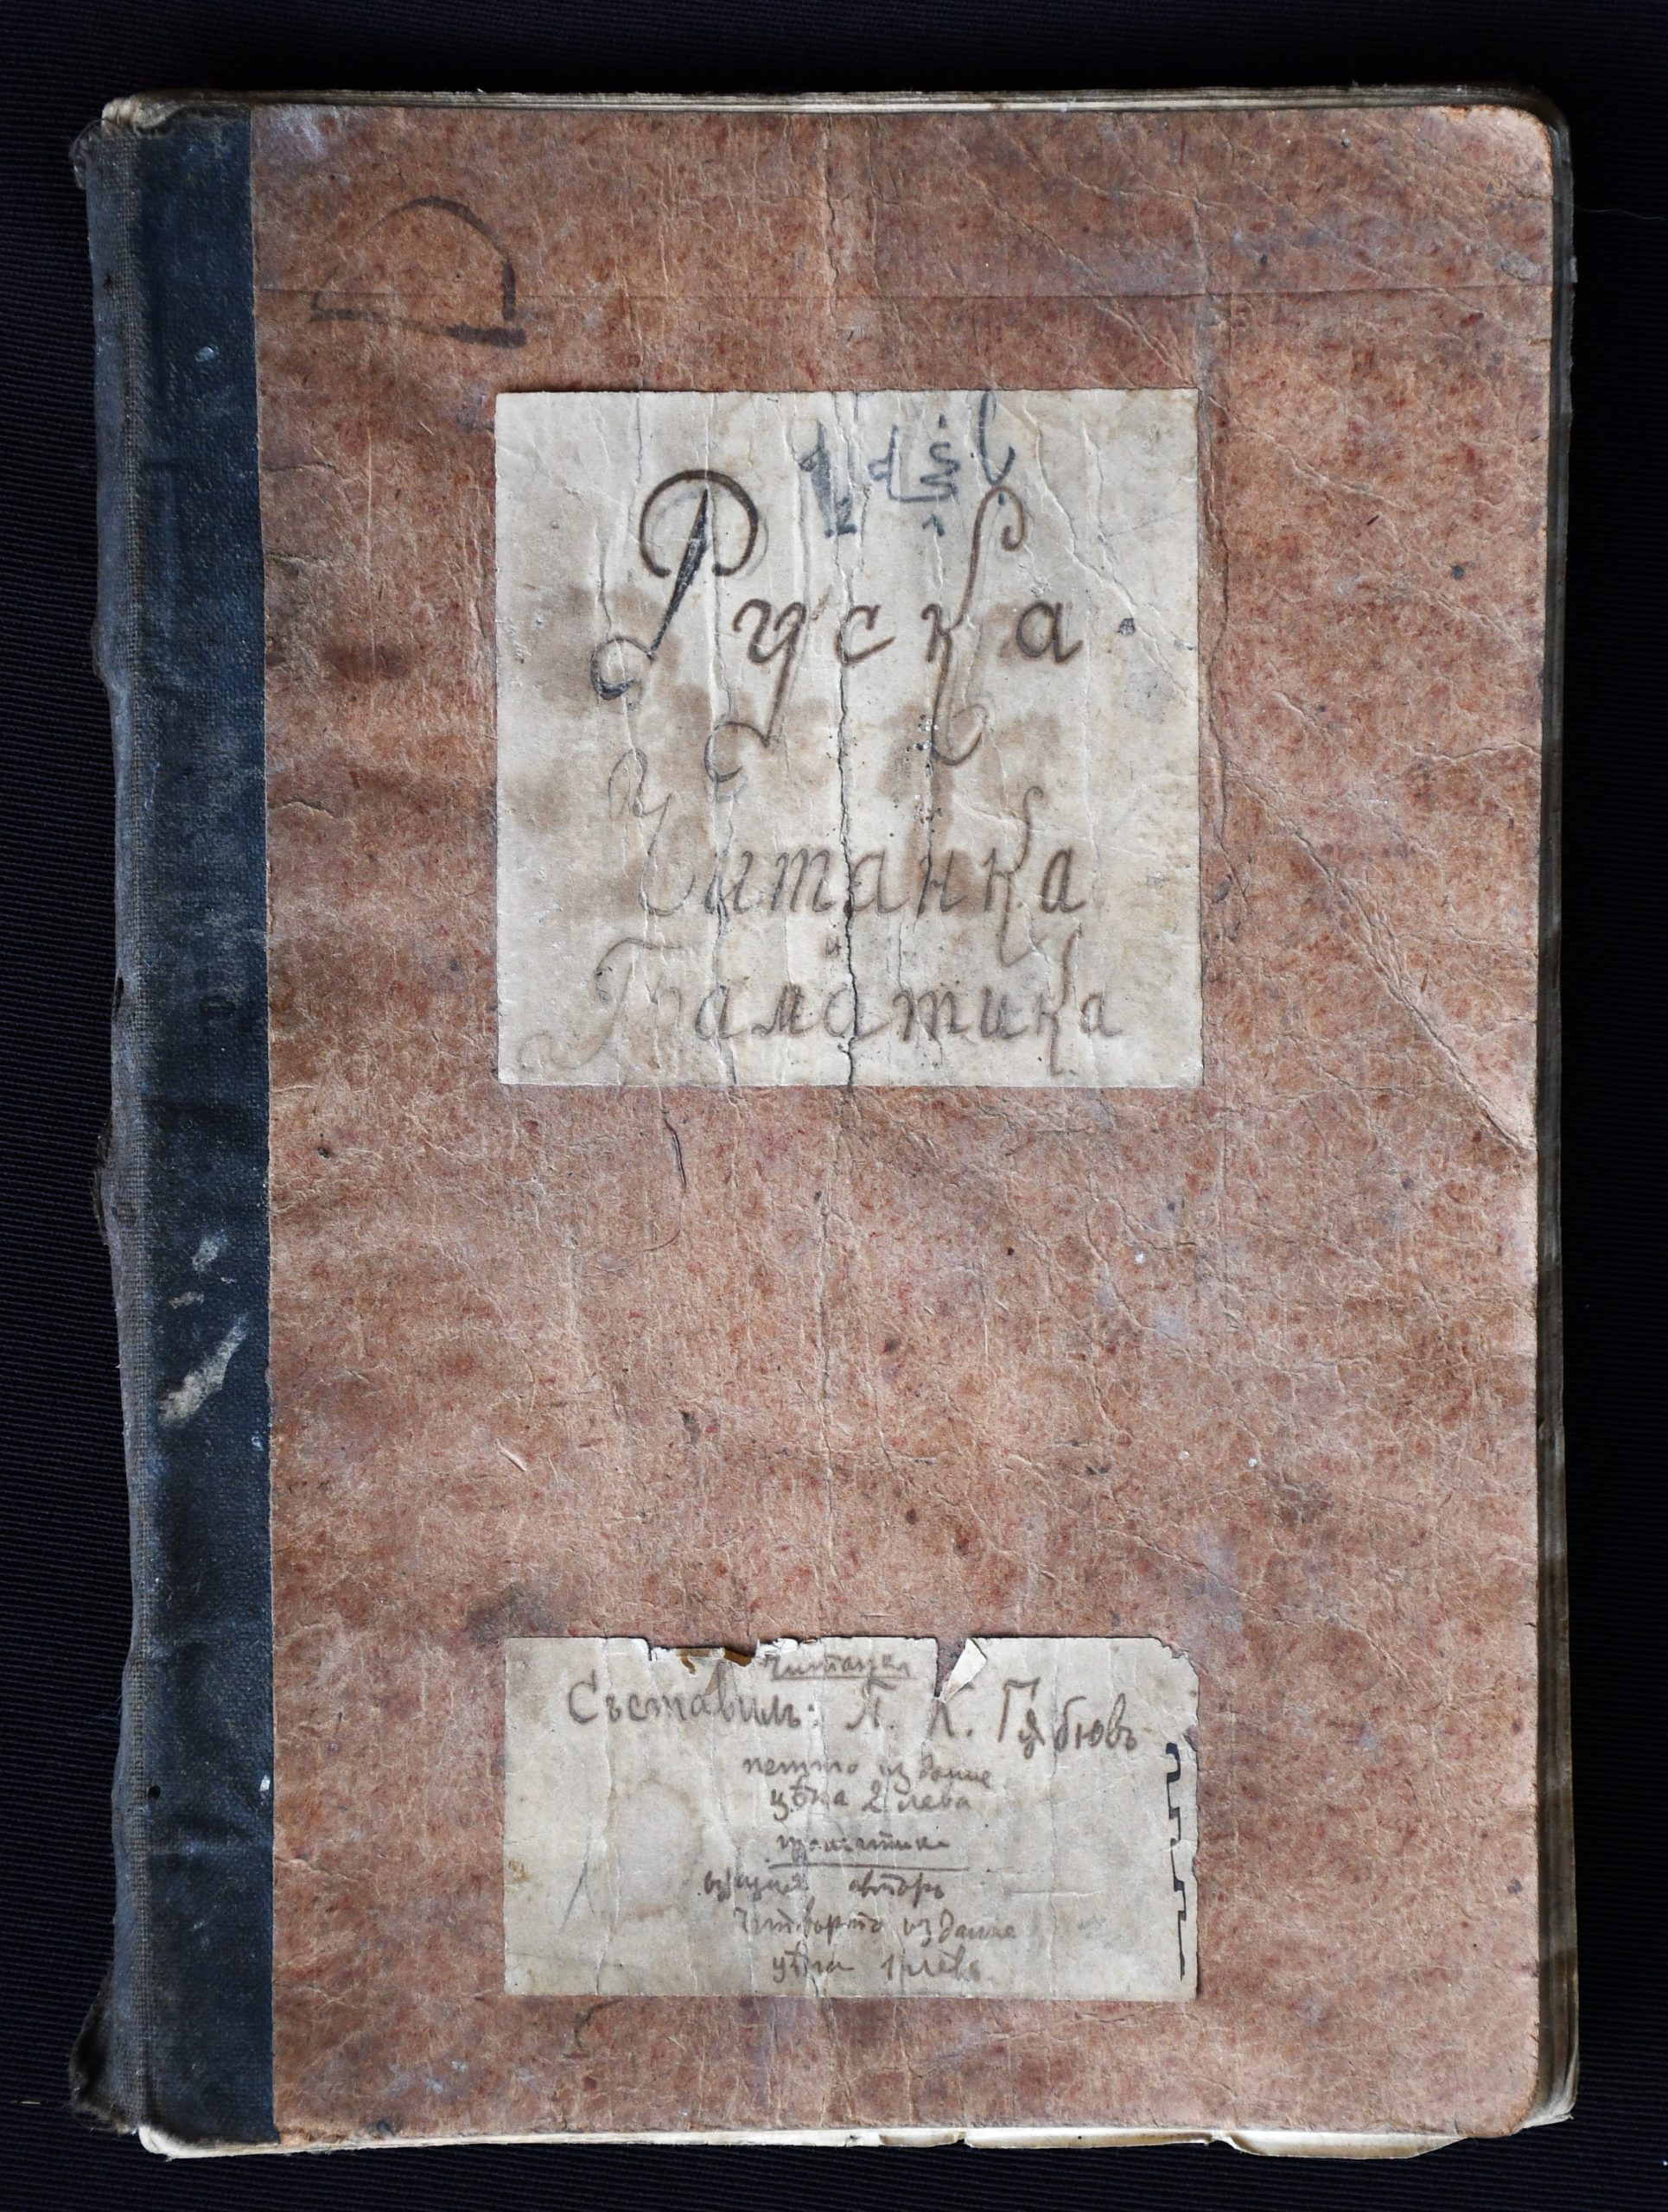 Руска
Читанка
и
Граматика
Читанка
Съставилъ: П. К. Гѫбювъ
петто издание
цѣна 2 лева
граматика
сѫщия авторъ
Читвърто издание
цѣна 1 лева